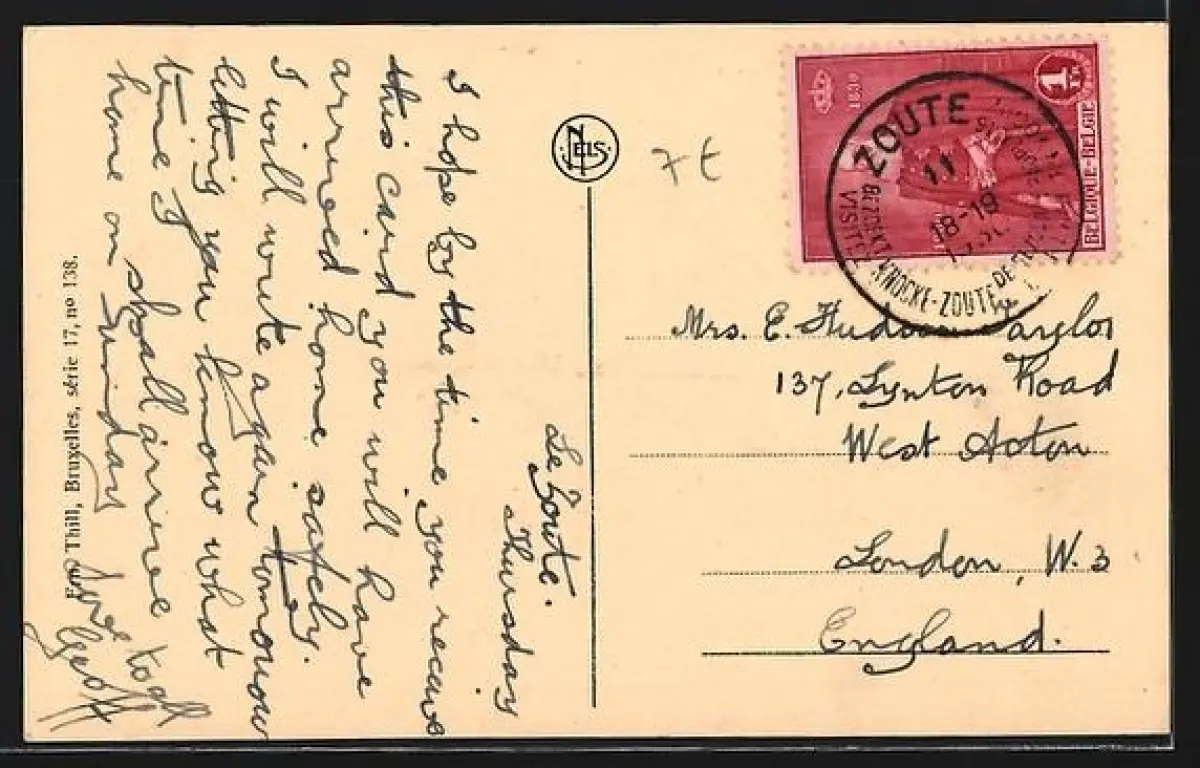 Le Zoute.
Thursday
I hope by the time you receive
this card you will have
arrived home safely.
I will write again tomorrow
letting you know what
time I shall arrive
home on Sunday
Love to all
Geoff
Ern. Thill, Bruxelles, série 17, nº 138.
NELS
7 €
1830
1 Fr
BELGIQUE-BELGIË
ZOUTE
11
18-19
KNOCKE-ZOUTE
VISITEZ
BEZOEKT
Mrs. E. Hudson
137, Lynton Road
West Acton
London, W.3
England.